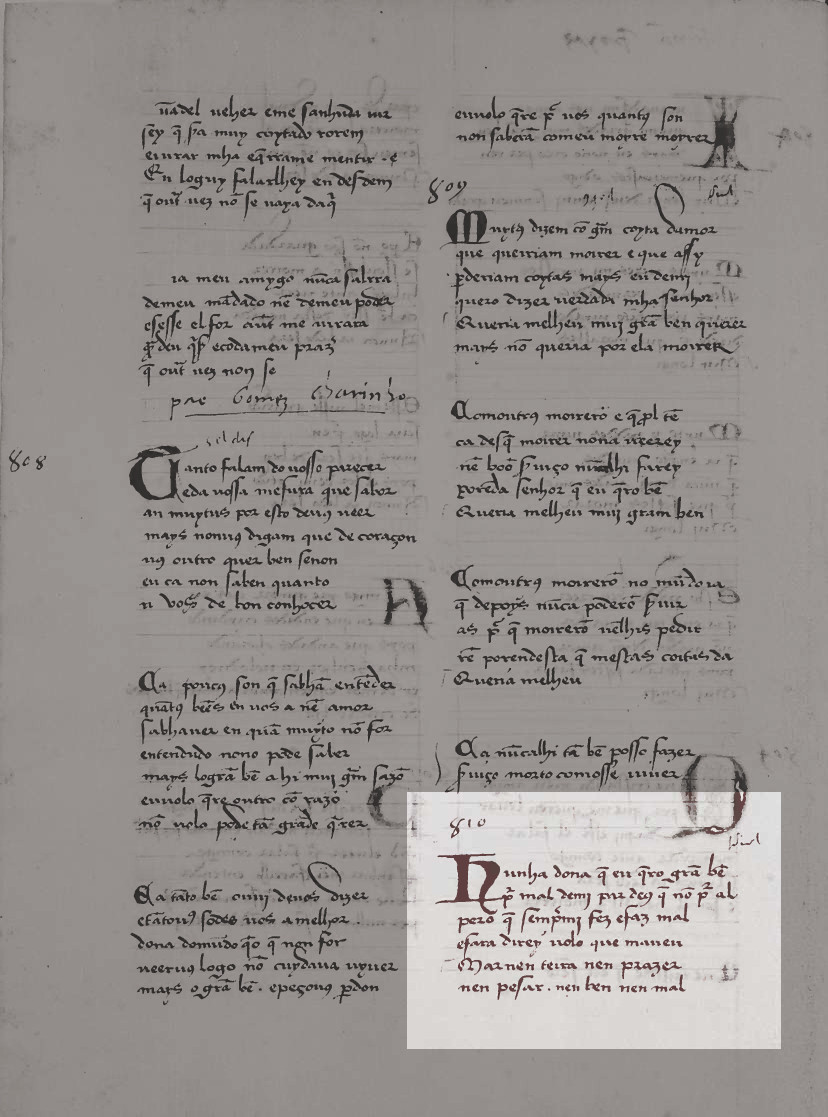 ueher eme sanhuda
sey q̃ muy coytado
eiurar mha mentir · e
En loguy falarlhey en desdem
q̃ out̃ uez nõ se uaya daq̃
meu amygo nũca salrra
demeu mãdado nẽ demeu poder
esesse el for
ecodameu praz̃
q̃ out̃ uez non se
pae Gomez Charinho
808
Tanto falam do uosso parecer
eda uossa mesura que sabor
an muytus por esto deu9 ueer
mays nonu9 digam que de coraçon
uꝯ outro quer ben senon
eu ca non saben quanto
de bon conhocer
Ca poucꝯ son q̃ sabhã entẽder
quãtꝯ beẽs en uos a nẽ amor
sabhauer en quã muyto nõ for
entendudo nono pode saber
mays lográ bẽ a hi mui grãm sazõ
euuolo q̃re outro cõ razõ
nõ uolo pode tã grãde q̃rer
Ca tãto bẽ deuos dizer
sodes uos a melhor ·
dona domũdo q̃ non for
ueeruꝯ logo nõ cuydaua uyuer
mays o grã bẽ · epeçouꝯ p̃don
euuolo q̃re p̃ uos quantꝯ son
non saberã comeu moyre morrer
809
Muytꝯ dizem cõ grãm coyta damor
que queiriam moirer e que assy
p̃deriam coytas mays eu demi
quero dizer uerdada mha senhor
Queria melheu mui grã ben querer
mays nõ queria por ela moirer
Comoutrꝯ moirerõ e q̃ prol tẽ
ca desq̃ moirer nona ueerey
nẽ boõ s̃uiço farey
poreda senhor q̃ eu q̃ro bẽ
Queria melheu mui gram ben
Comoutrꝯ moirerõ no mũdo ia
q̃ depoys nũca poderõ s̃uir
as p̃ q̃ moirerõ nẽlhis pedir
rẽ porendesta q̃ mestas coitas da
Queria melheu
Ca nũcalhi tã bẽ posso fazer
s̃uiço morto comosse uiuer
810
Hunha dona q̃ eu q̃ro grã bẽ
p̃ mal demj par de9 q̃ nõ p̃ al
pero q̃ semp̃mj fez efaz mal
efara direy uolo que maueu
Mar nen teira nen prazer
nen pesar · nen ben nen mal